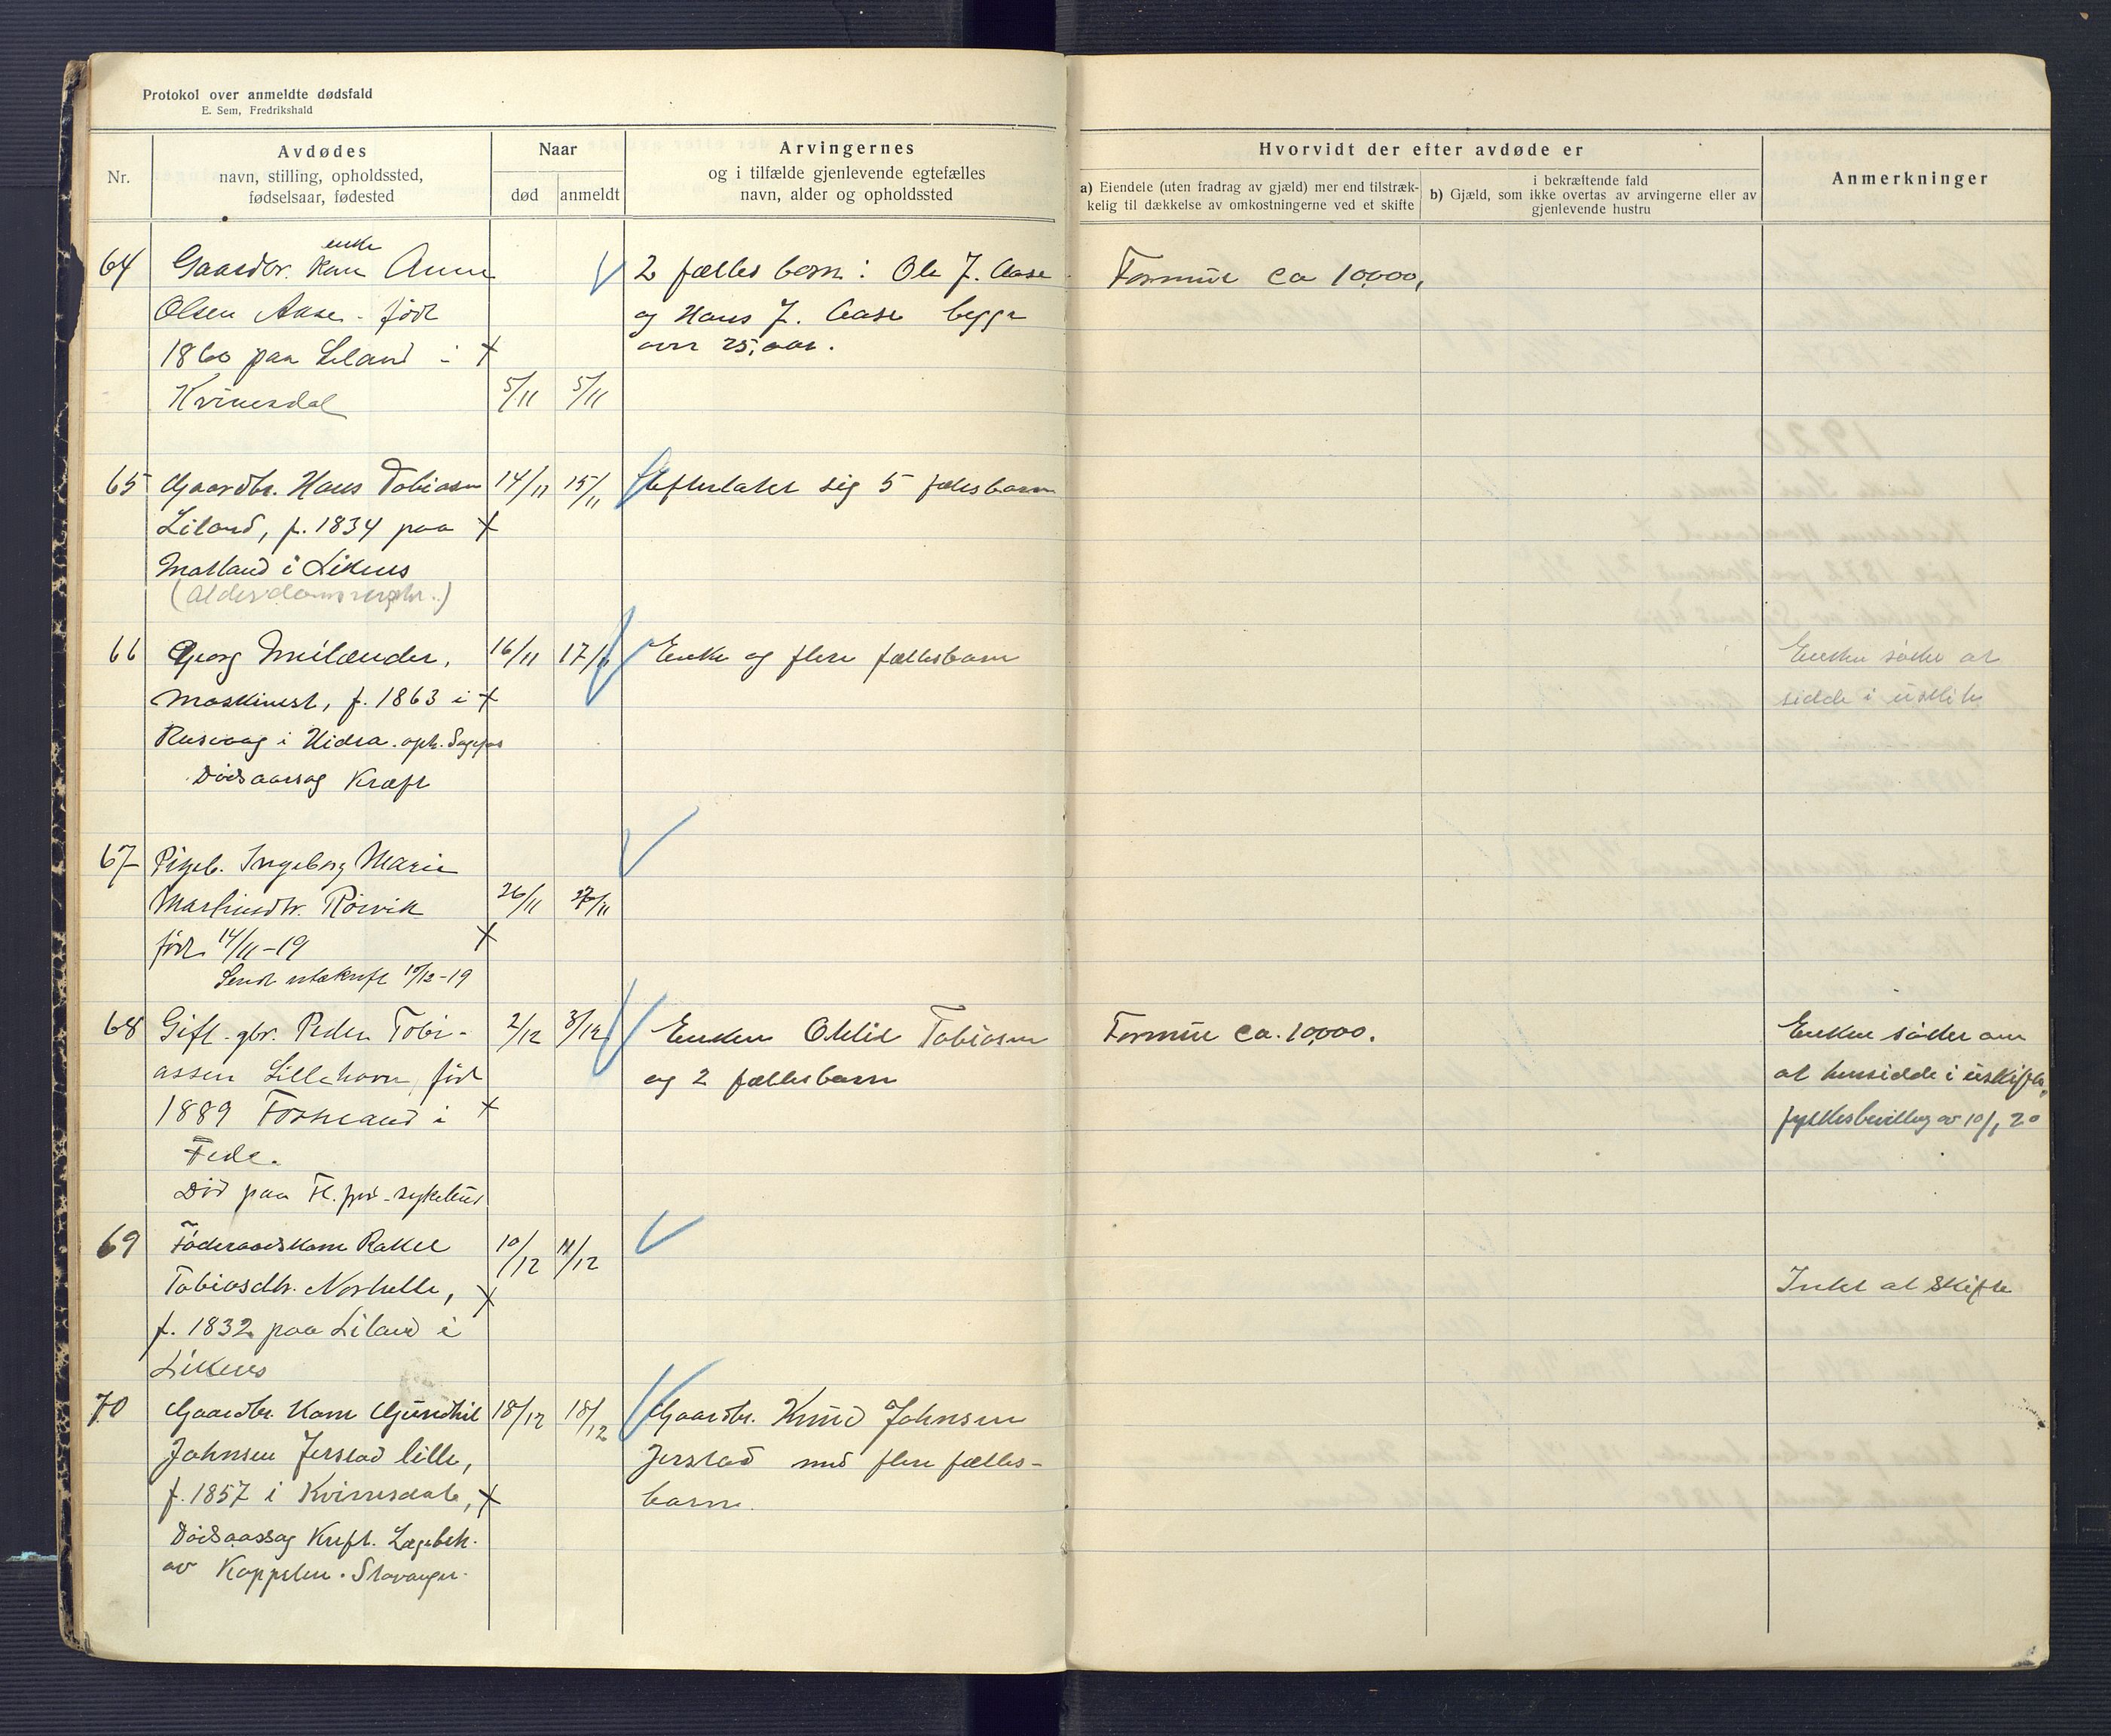 Protokol over anmeldte dødsfald
E. Sem, Fredrikshald
Nr.
Avdødes
navn, stilling, opholdssted,
fødselsaar, fødested
Naar
død
anmeldt
Arvingernes
og i tilfælde gjenlevende egtefælles
navn, alder og opholdssted
Hvorvidt der efter avdøde er
a) Eiendele (uten fradrag av gjæld) mer end tilstræk-
kelig til dækkelse av omkostningerne ved et skifte
i bekræftende fald
b) Gjæld, som ikke overtas av arvingerne eller av
gjenlevende hustru
Anmerkninger
64
enke
Gaardbr. kone Anne
Olsen Aase - født
1860 paa Liland i
Kvinesdal
5/11 5/11
2 fælles barn: Ole J. Aase
og Hans J. Aase begge
over 25, aar.
Formue ca 10,000,
65
Gaardbr. Hans Tobiasen
Liland, f. 1834 paa
Matland i Liknes
14/11 15/11
Efterlater sig 5 fællesbarn
66
Georg
Maskinist, f. 1863 i
Rusvaag i Hidra. oph.
Dødsaarsag Kræft
16/11 17/11
Enke og flere fællesbarn
Enken søker at
sidde i uskifte
67
Pigeb. Ingeborg Marie
Martinsdtr. Røisvik
født 14/11-19
Sendt utskrift 10/12-19
26/11 27/11
68
Gift. gbr. Peder Tobi-
assen Lillehavn, født
1889 Fosseland i
Fede.
Død paa Fl. priv. sykehus
2/12 3/12
Enken Otilie Tobiasen
og 2 fællesbarn
Formue ca. 10,000.
Enken søker om
at hensidde i uskifte,
fylkesbevilling av 10/1 20
69
Føderaadskone Rakel
Tobiasdtr. Norhelle,
f. 1832 paa Liland i
Liknes
10/12 11/12
Intet at skifte
70
Gaardbr. Kone Gunhil
Johnsen Jerstad lille,
f. 1857 i Kvinesdal,
Dødsaarsag Kreft. Lægebek.
av Koppelen. Stavanger.
18/12 18/12
Gaardbr. Knud Johnsen
Jerstad med flere fælles-
barn.